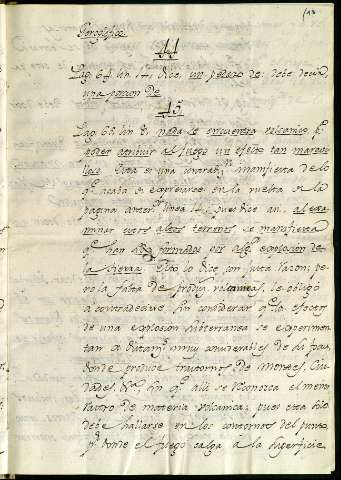 44
Pag. 64 lin. 14, dice, un pedazo de: debe decir,
una porcion de
45
Pag. 65 lin 8. nada se encuentra volcanico, pª
poder atribuir al fuego un efecto tan maravi-
lloso. Esta es una contradⁿ manifiesta de lo
qᵉ acaba de expresarse en la vuelta de la
pagina anterʳ linea 14, pues dice asi, al exa-
minar estos altos terrenos se manifiesta
qᵉ han sido formados por algª explosion de
la tierra. Esto lo dice con justa razon; pe-
ro la falta de produjᵒ volcanicos, le obligó
á contradecirse sin considerar qᵉ los efectos
de una explosion subterranea se experimen-
tan á distanª muy considerables de el pais
donde produce trastornos de Montes, Ciu-
dades &ª sin qᵉ alli se reconozca el menor
rastro de materia volcanica: pues esta solo
debe hallarse en los contornos del punto
pʳ donde el fuego salga á la superficie